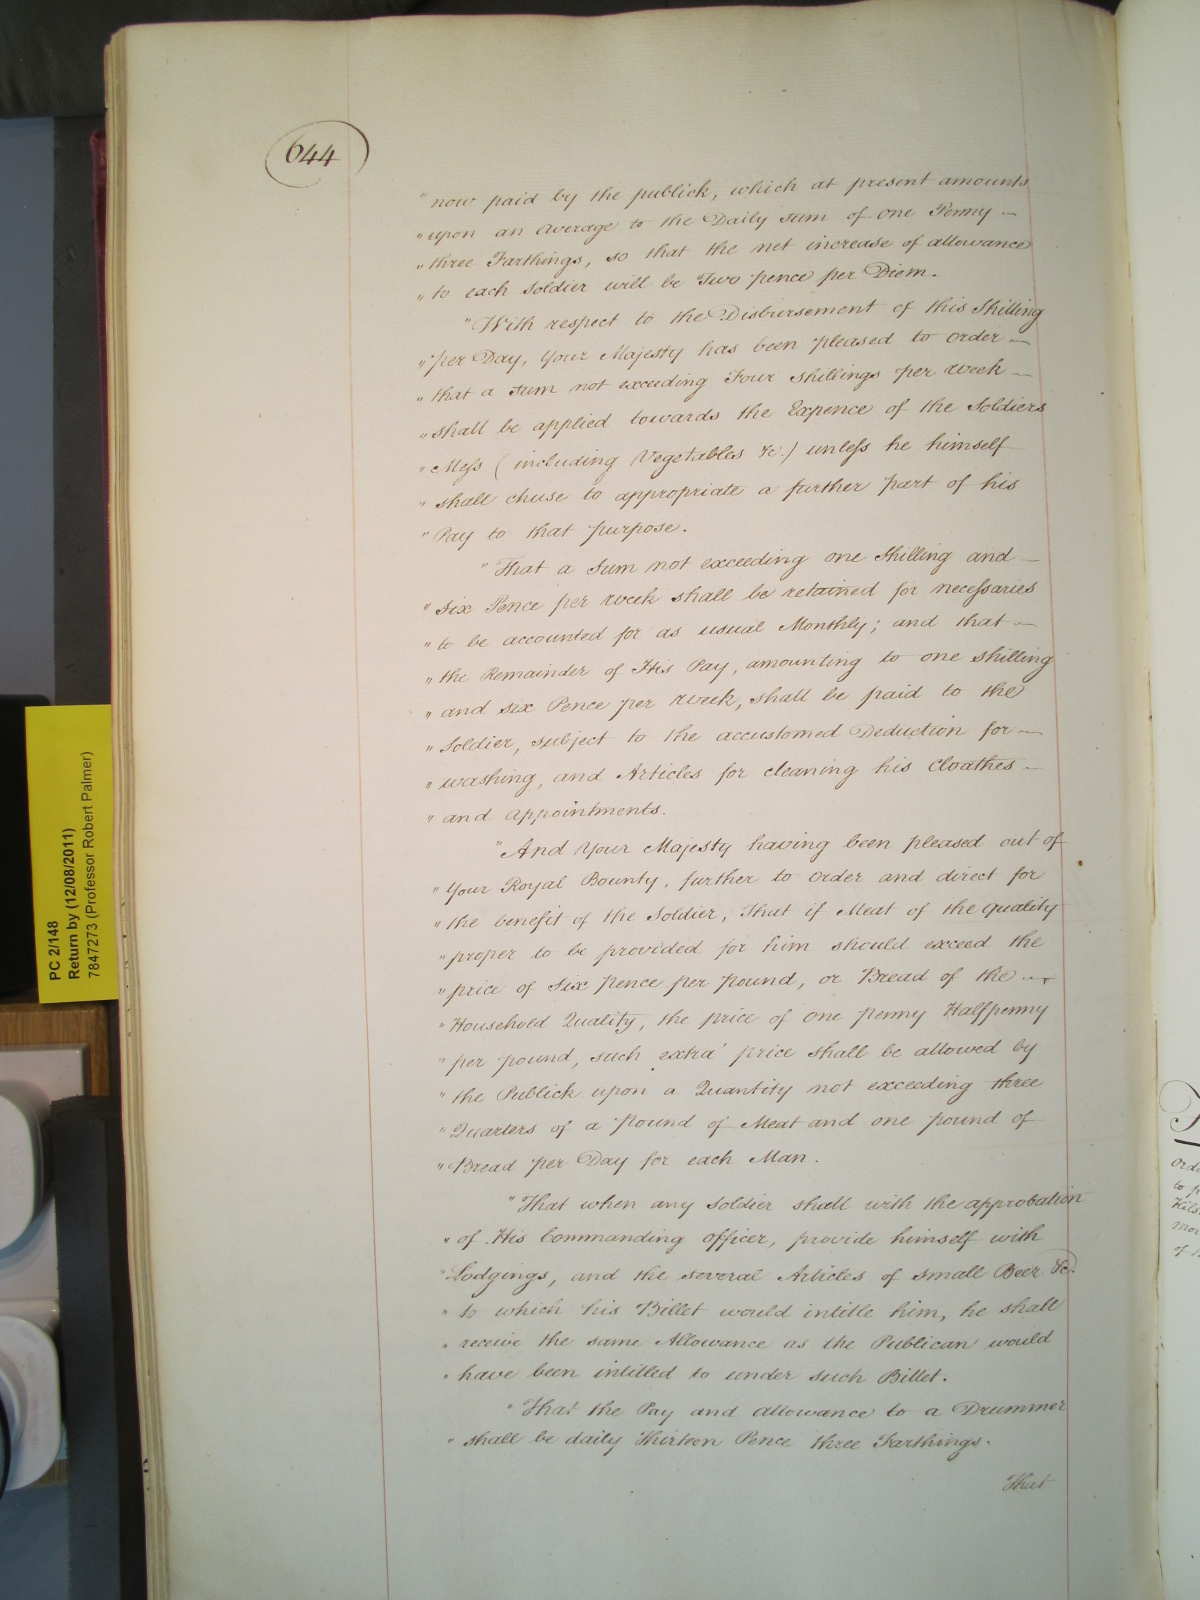 644
" now paid by the publick, which at present amounts
" upon an Average to the Daily sum of one Penny —
" three Farthings, so that the net increase of allowance
" to each Soldier will be Two pence per Diem.
" With respect to the Disbursement of this Shilling
" per Day, Your Majesty has been pleased to order —
" that a Sum not exceeding Four Shillings per week —
" shall be applied towards the Expence of the Soldiers
" Mess (including Vegetables &c.) unless he himself
" shall chuse to appropriate a further part of his
" Pay to that purpose.
" That a Sum not exceeding one Shilling and —
" Six Pence per week shall be retained for necessaries
" to be accounted for as usual Monthly; and that —
" the Remainder of His Pay, amounting to one shilling
" and six Pence per week, shall be paid to the
" Soldier, subject to the accustomed Deduction for —
" washing, and Articles for cleaning his Cloathes —
" and Appointments.
" And Your Majesty having been pleased out of
" Your Royal Bounty, further to order and direct for
" the benefit of the Soldier, That if Meat of the quality
" proper to be provided for him should exceed the
" price of Six pence per pound, or Bread of the —
" Household Quality, the price of one penny Halfpenny
" per pound, such extra price shall be allowed by
" the Publick upon a Quantity not exceeding three
" Quarters of a Pound of Meat and one pound of
" Bread per Day for each Man.
" That when any Soldier shall with the approbation
" of His Commanding officer, provide himself with
" Lodgings, and the several Articles of small Beer &c.
" to which his Billet would intitle him, he shall
" receive the same Allowance as the Publican would
" have been intitled to under such Billet.
" That the Pay and allowance to a Drummer
" shall be daily Thirteen Pence three Farthings.
That
PC 2/148
Return by (12/08/2011)
7847273 (Professor Robert Palmer)